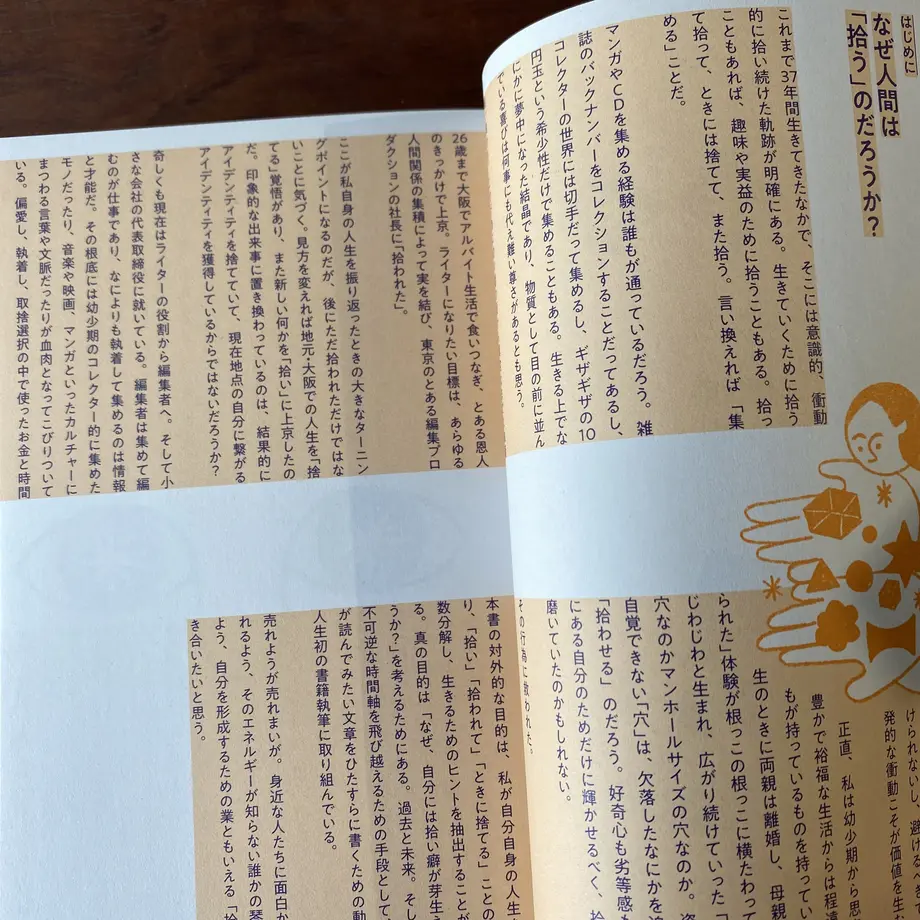 はじめに
なぜ人間は
「拾う」のだろうか?
これまで37年間生きてきたなかで、そこには意識的、衝動
的に拾い続けた軌跡が明確にある。生きていくために拾う
こともあれば、趣味や実益のために拾うこともある。拾っ
て拾って、ときには捨てて、また拾う。言い換えれば「集
める」ことだ。
マンガやCDを集める経験は誰もが通っているだろう。雑
誌のバックナンバーをコレクションすることだってあるし、
コレクターの世界には切手だって集めるし、ギザギザの10
円玉という希少性だけで集めることもある。生きる上でな
にかに夢中になった結晶であり、物質として目の前に並ん
でいる喜びは何事にも代え難い尊さがあるとも思う。
けられないし、避けるべき
発的な衝動こそが価値を生
正直、私は幼少期から思
豊かで裕福な生活からは程遠
もが持っているものを持ってい
生のときに両親は離婚し、母親
られた」体験が根っこの根っこに横たわって
じわじわと生まれ、広がり続けていった「
穴なのかマンホールサイズの穴なのか。
自覚できない「穴」は、欠落したなにかを
「拾わせる」のだろう。好奇心も劣等感も
にある自分のためだけに輝かせるべく、拾
磨いていたのかもしれない。
その行為に救われた。
26歳まで大阪でアルバイト生活で食いつなぎ、とある恩人
のきっかけで上京。ライターになりたい目標は、あらゆる
人間関係の集積によって実を結び、東京のとある編集プロ
ダクションの社長に「拾われた」。
ここが私自身の人生を振り返ったときの大きなターニン
グポイントになるのだが、後にただ拾われただけではな
いことに気づく。見方を変えれば地元・大阪での人生を「捨
てる」覚悟があり、また新しい何かを「拾い」に上京したの
だ。印象的な出来事に置き換わっているのは、結果的に
アイデンティティを捨てていて、現在地点の自分に繋がる
アイデンティティを獲得しているからではないだろうか?
奇しくも現在はライターの役割から編集者へ。そして小
さな会社の代表取締役に就いている。編集者は集めて編
むのが仕事であり、なによりも執着して集めるのは情報
と才能だ。その根底には幼少期のコレクター的に集めた
モノだったり、音楽や映画、マンガといったカルチャーに
まつわる言葉や文脈だったりが血肉となってこびりついて
いる。偏愛し、執着し、取捨選択の中で使ったお金と時間
本書の対外的な目的は、私が自分自身の人生
り、「拾い」「拾われて」「ときに捨てる」ことの
数分解し、生きるためのヒントを抽出することが
る。真の目的は「なぜ、自分には拾い癖が芽生え
うか?」を考えるためにある。過去と未来。そし
不可逆な時間軸を飛び越えるための手段として、
が読んでみたい文章をひたすらに書くための動
人生初の書籍執筆に取り組んでいる。
売れようが売れまいが。身近な人たちに面白が
れるよう、そのエネルギーが知らない誰かの琴
よう、自分を形成するための業ともいえる「拾
き合いたいと思う。